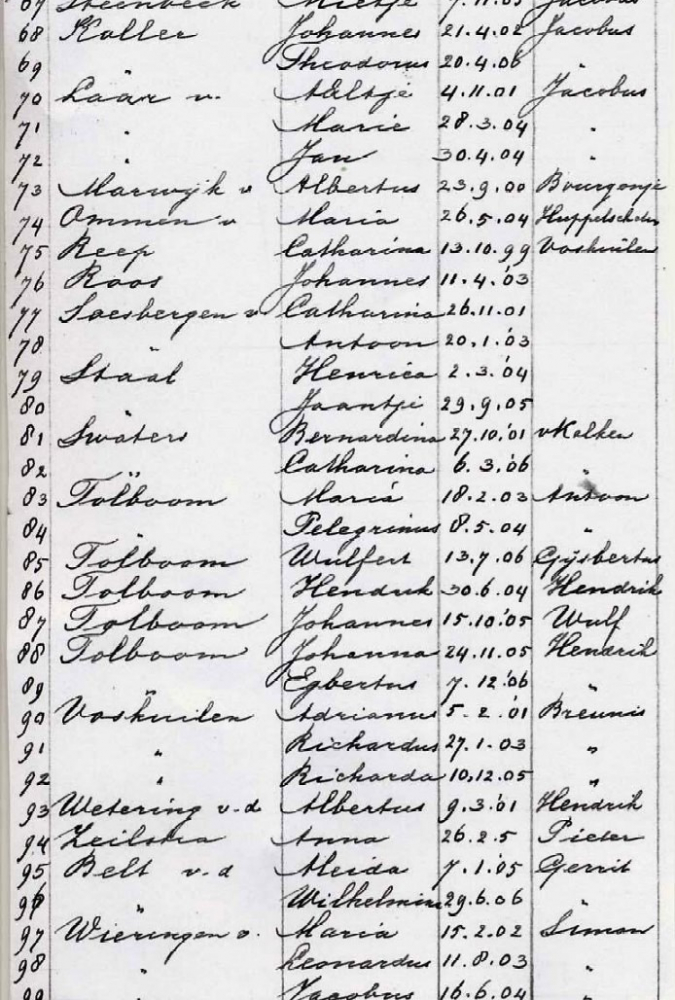 67 Steenbeek Mietje 7.11.05 Jacobus
68 Koller Johannes 21.4.02 Jacobus
69 Theodorus 20.4.06
70 Laar v. Aaltje 4.11.01 Jacobus
71 " Marie 28.3.04 "
72 " Jan 30.4.04 "
73 Marwijk v Albertus 23.9.00 Bourgonje
74 Ommen v Maria 26.5.04
75 Reep Catharina 13.10.99 Voskuilen
76 Roos Johannes 11.4.'03
77 Soesbergen v Catharina 26.11.01
78 " Antoon 20.1.'03
79 Staal Henrica 2.3.'04
80 " Jaantje 29.9.05
81 Swaters Bernardina 27.10.'01 v Kolken
82 Catharina 6.3.'06
83 Tolboom Maria 18.2.03 Antoon
84 " Pelegrinus 8.5.04 "
85 Tolboom Wulfert 13.7.06 Gijsbertus
86 Tolboom Hendrik 30.6.04 Hendrik
87 Tolboom Johannes 15.10.'05 Wulf
88 Tolboom Johanna 24.11.05 Hendrik
89 Egbertus 7.12.'06 "
90 Voskuilen Adrianus 5.2.'01 Breunis
91 " Richardus 27.1.03 "
92 " Richarda 10.12.05 "
93 Wetering v.d Albertus 9.3.'01 Hendrik
94 Zeilstra Anna 26.2.5 Pieter
95 Belt v.d Aleida 7.1.'05 Gerrit
96 Wilhelmina 29.6.06
97 Wieringen v. Maria 15.2.02 Simon
98 " Leonardus 11.8.03 "
99 Jacobus 16.6.04 "